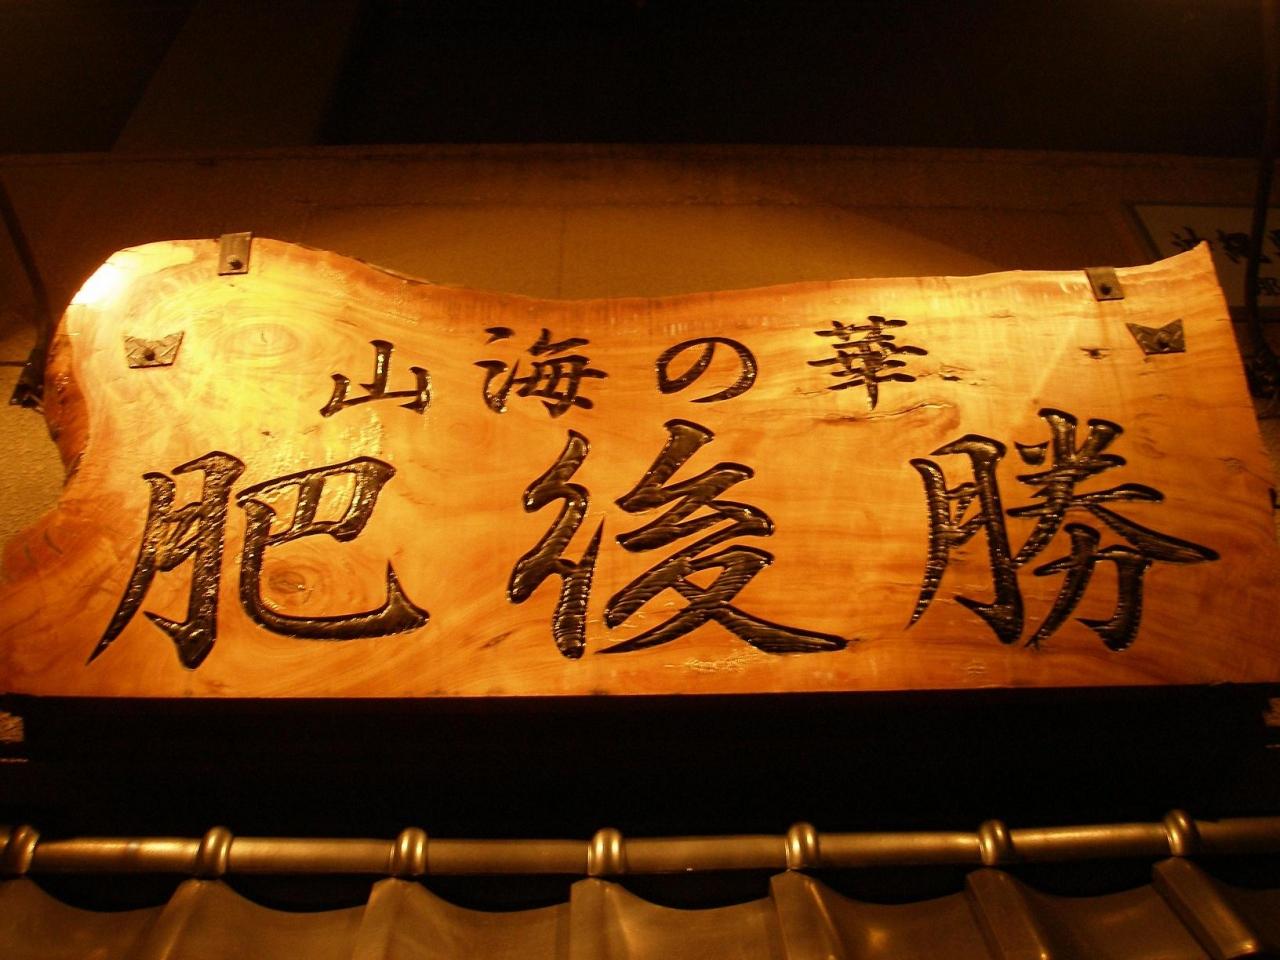 山海の華
肥後勝